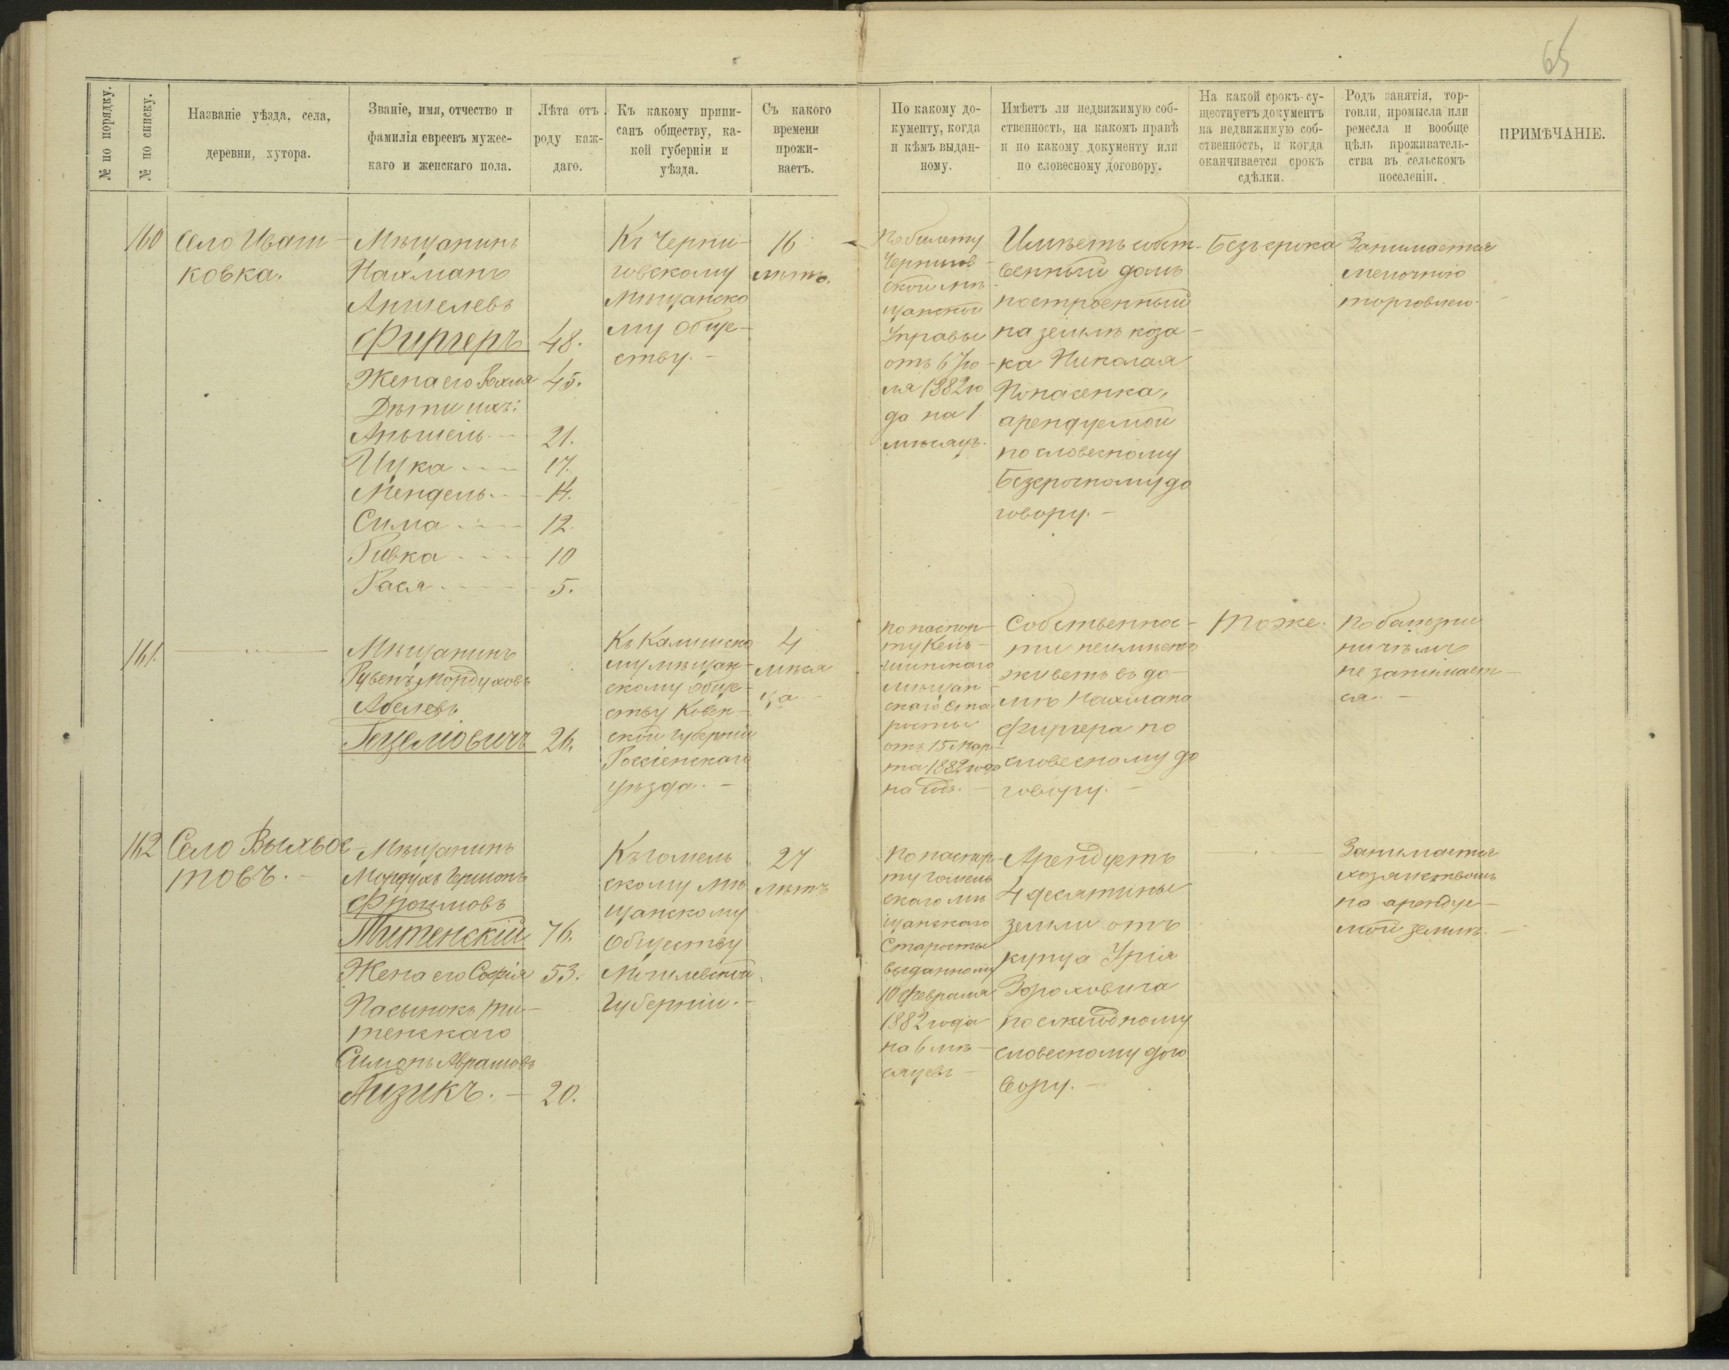 65
№ по порядку.
№ по списку.
Названіе уѣзда, села,
деревни, хутора.
Званіе, имя, отчество и
фамилія евреевъ мужес-
каго и женскаго пола.
Лѣта отъ
роду каж-
даго.
Къ какому припи-
санъ обществу, ка-
кой губерніи и
уѣзда.
Съ какого
времени
прожи-
ваетъ.
По какому до-
кументу, когда
и кѣмъ выдан-
ному.
Имѣетъ ли недвижимую соб-
ственность, на какомъ правѣ
и по какому документу или
по словесному договору.
На какой срокъ су-
ществуетъ документъ
на недвижимую соб-
ственность, и когда
оканчивается срокъ
сдѣлки.
Родъ занятія, тор-
говли, промысла или
ремесла и вообще
цѣль проживатель-
ства въ сельскомъ
поселеніи.
ПРИМѢЧАНІЕ.
160
Село Иваш-
ковка.
Мѣщанинъ
Нахманъ
Аншелевъ
Фигреръ 48.
Жена его Рохля 45.
Дѣти ихъ:
Аншель 21.
Цука 17.
Мендель 14.
Сима 12.
Ривка 10
Рася 5.
Къ Черни-
говскому
Мѣщанско
му обще-
ству.
16
лѣтъ.
По билету
Чернигов
ской мѣ-
щанской
Управы
отъ 6 Ію
ля 1882 го
да на 1
мѣсяцъ.
Имѣетъ собст-
венный домъ
построенный
на землѣ коза-
ка Николая
Попасенка,
арендуемой
по словесному
безсрочному до
говору.
Безъ срока
Занимается
мелочною
торговлею.
161.
Мѣщанинъ
Рувенъ Мордуховъ
Абелевъ
Гецелiовичъ 26.
му мѣщан-
скому обще-
ству Ковен-
ской губерніи
Россіенскаго
уѣзда.
4
мѣся
ца
По паспор-
ту
мѣщан-
скаго Ста
росты
отъ 15 Мар-
та 1882 года
на годъ.
Собственнос-
ти неимѣетъ
живетъ въ до-
мѣ Нахмана
Фигрера по
словесному до
говору.
Тоже.
По болезни
ничѣмъ
не занимает-
ся.
162
Село Выхвос
товъ.
Мѣщанинъ
Мордухъ Гершонъ
Фроимовъ
Титенскій 76.
Жена его Софія 53.
Пасынокъ Ти-
тенскаго
Симонъ Аврамовъ
Айзикъ. 20.
Къ гомель
скому мѣ
щанскому
Обществу
Могилевской
Губерніи.
27
лѣтъ
По паспор-
ту гомель
скаго мѣ
щанскаго
Старосты
выданному
10 Февраля
1882 года
на 6 мѣ-
сяцевъ
Арендуетъ
4 десятины
земли отъ
купца Урія
Зороховича
по ежегодному
словесному дого
вору.
Занимается
хозяйствомъ
на арендуе-
мой землѣ.